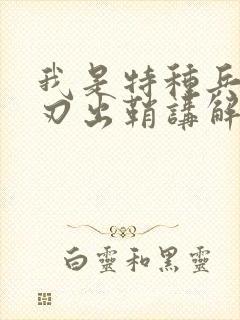 我是特種兵
刃出鞘講解
白靈和黑靈